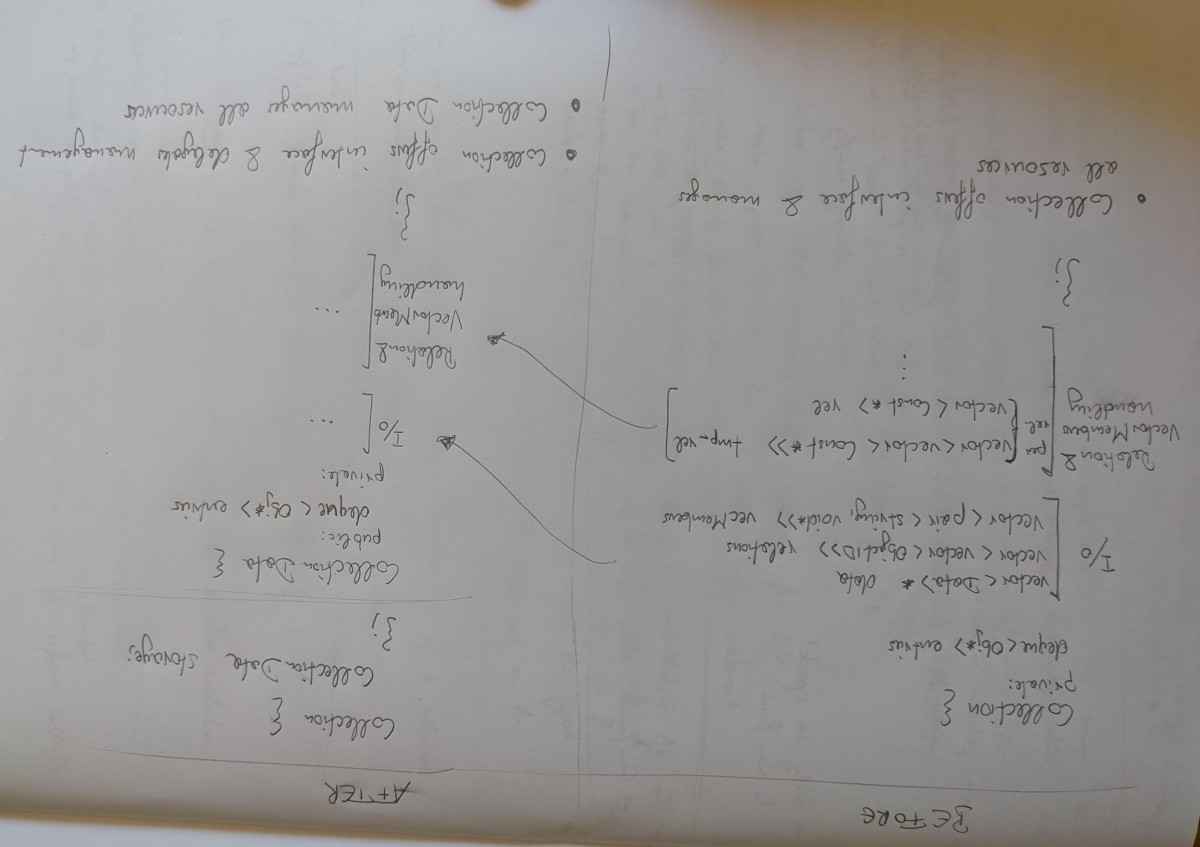 BEFORE
Collection {
private:
deque<Obj*> entries
I/O
vector<Data>* data
vector<vector<ObjectID>> relations
vector<pair<string, void*>> vecMembers
Relation &
VectorMembers
handling
per
rel.
vector<vector<Const*>> tmp-rel
vector<Const*> rel
...
};
• Collection offers interface & manages
all resources
AFTER
Collection {
Collection Data storage;
};
Collection Data {
public:
deque<Obj*> entries
private:
I/O
...
Relation &
VectorMemb
handling
...
};
• Collection offers interface & delegates management
• Collection Data manages all resources